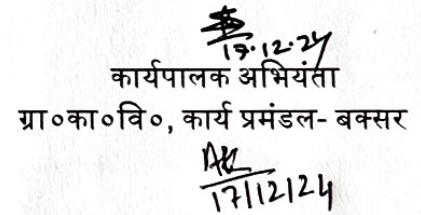 19.12.24
कार्यपालक अभियंता
ग्रा०का०वि०, कार्य प्रमंडल- बक्सर
17/12/24